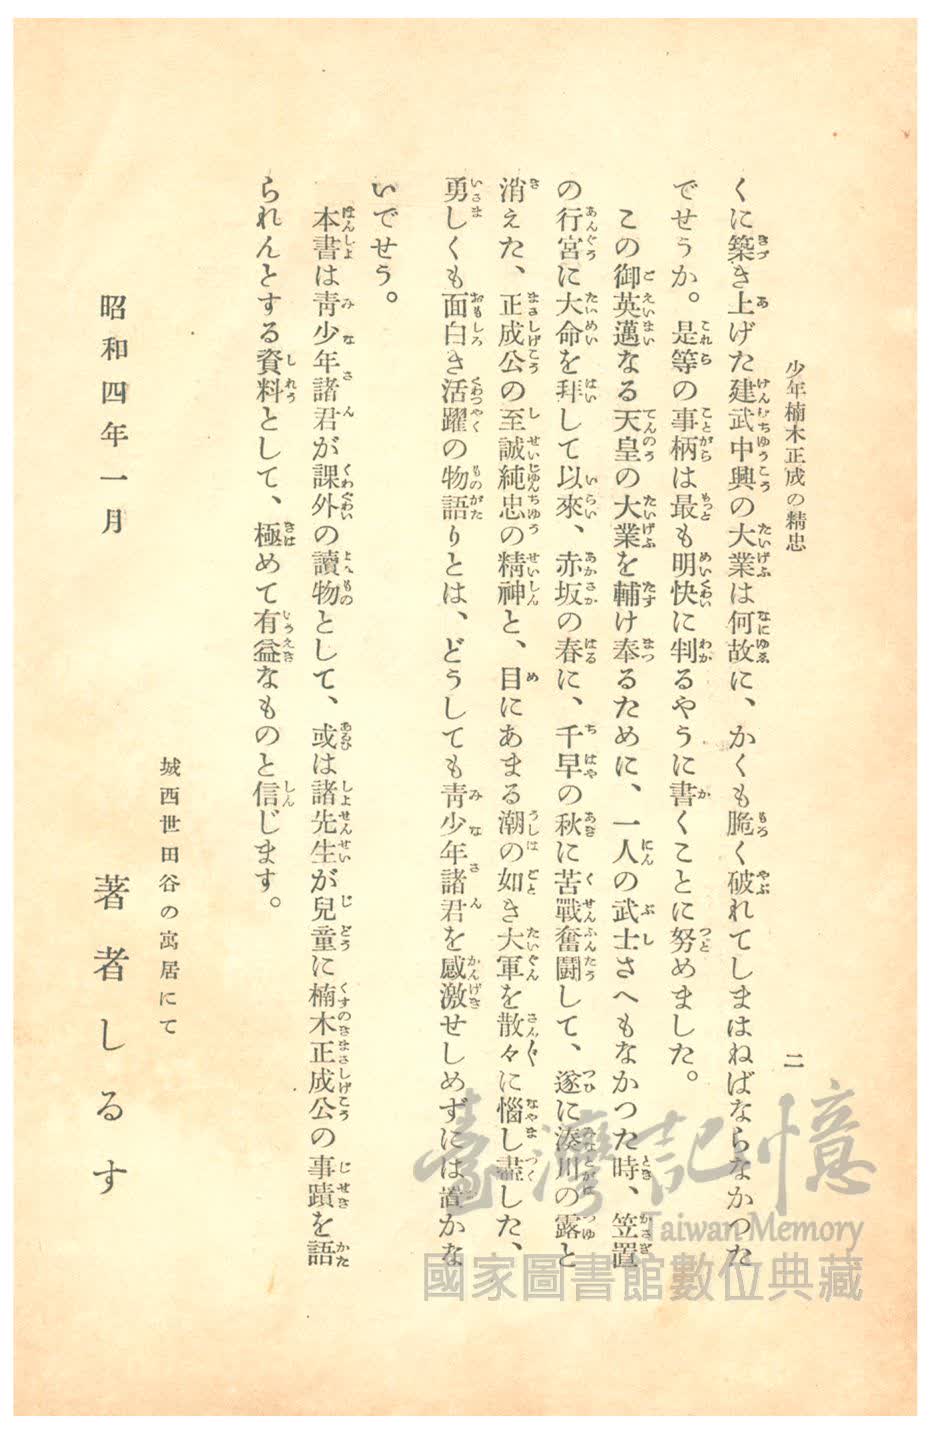 少年楠木正成の精忠
二
くに築き上げた建武中興の大業は何故に、かくも脆く破れてしまはねばならなかつた
でせうか。是等の事柄は最も明快に判るやうに書くことに努めました。
この御英邁なる天皇の大業を輔け奉るために、一人の武士さへもなかつた時、笠置
の行宮に大命を拜して以來、赤坂の春に、千早の秋に苦戰奮鬪して、遂に湊川の露と
消えた、正成公の至誠純忠の精神と、目にあまる潮の如き大軍を散々に惱し盡した、
勇しくも面白き活躍の物語りとは、どうしても靑少年諸君を感激せしめずには置かな
いでせう。
本書は靑少年諸君が課外の讀物として、或は諸先生が兒童に楠木正成公の事蹟を語
られんとする資料として、極めて有益なものと信じます。
城西世田谷の寓居にて
昭和四年一月
著者しるす
臺灣記憶
Taiwan Memory
國家圖書館數位典藏